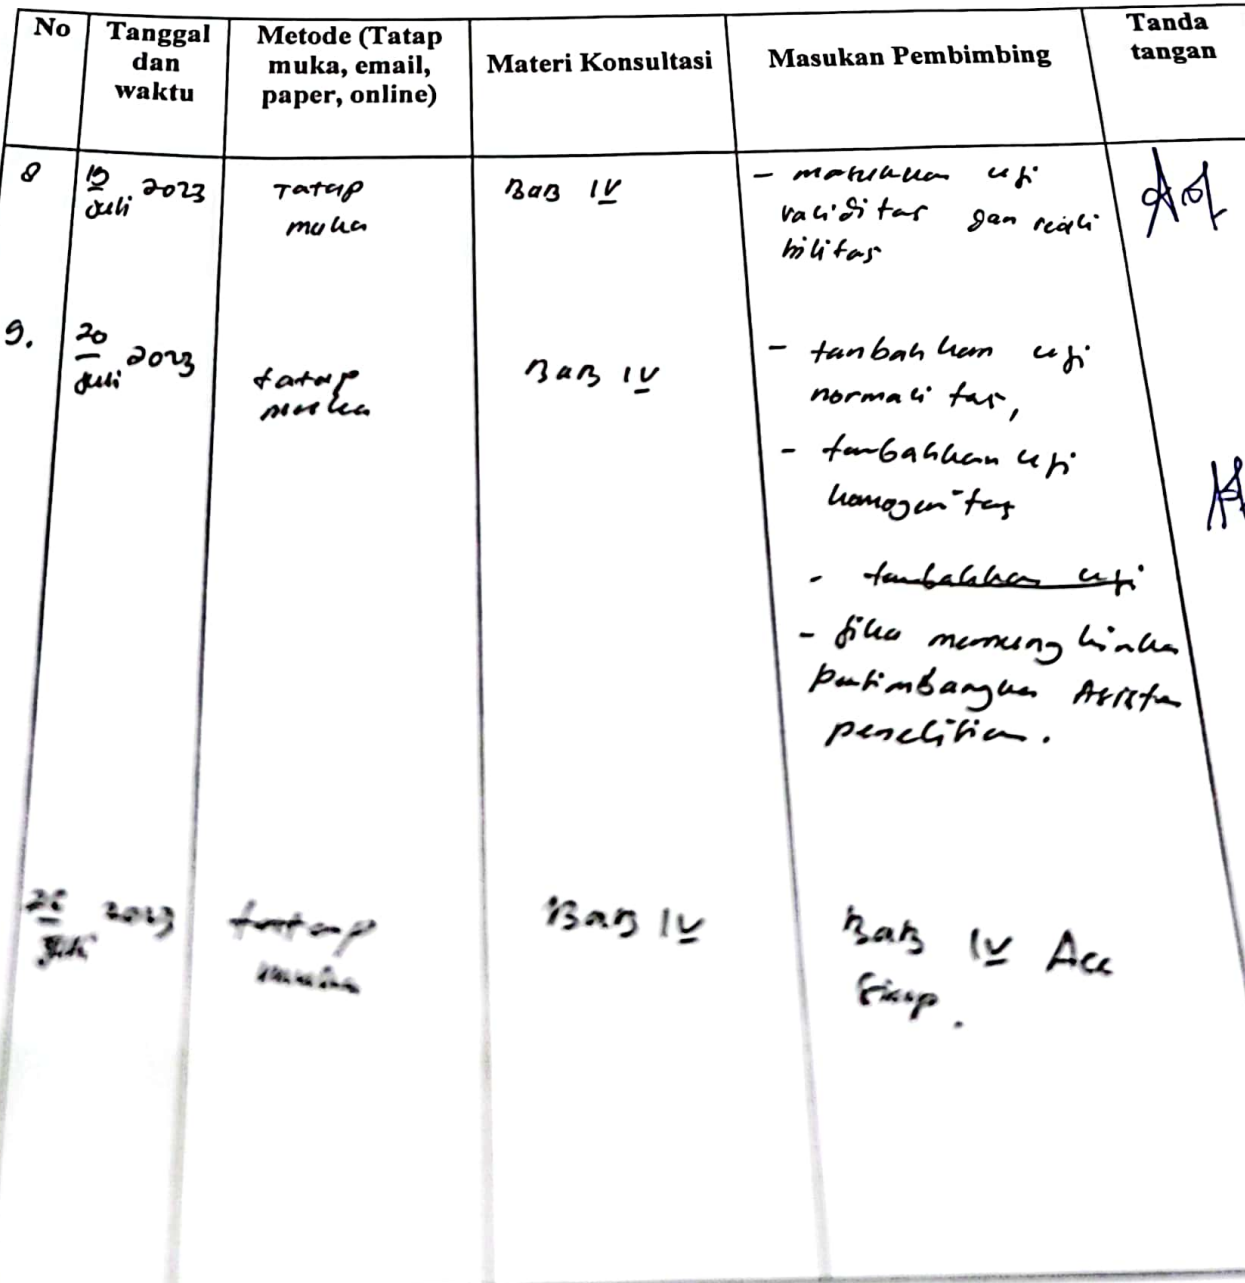 No
Tanggal
dan
waktu
Metode (Tatap
muka, email,
paper, online)
Materi Konsultasi
Masukan Pembimbing
Tanda
tangan
8
Juli 2023
Tatap
muka
BAB IV
- masukkan uji
validitas dan reali
bilitas
9.
20
Juli 2023
tatap
muka
BAB IV
- tambahkan uji
normalitas,
- tambahkan uji
homogenitas
- tambahkan uji
- jika memungkinkan
pertimbangkan Asisten
penelitian.
Juli 2023
tatap
muka
BAB IV
BAB IV Acc